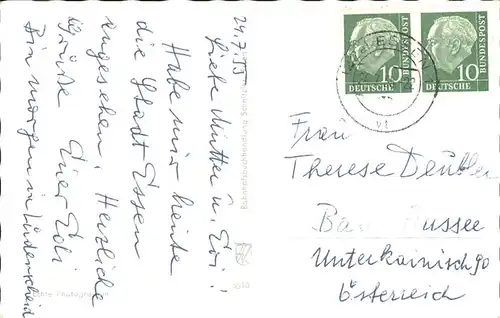 24.7.55
Liebe Mutter u. Evi!
Habe mir heute
die Stadt Essen
angesehen. Herzliche
Grüße Euer Edi
Bin morgen in Lüdenscheid
Echte Photographie
Bahnhofsbuchhandlung
10
DEUTSCHE
BUNDESPOST
10
DEUTSCHE
BUNDESPOST
Frau
Therese Deubler
Bad Aussee
Unterkainisch 90
Österreich